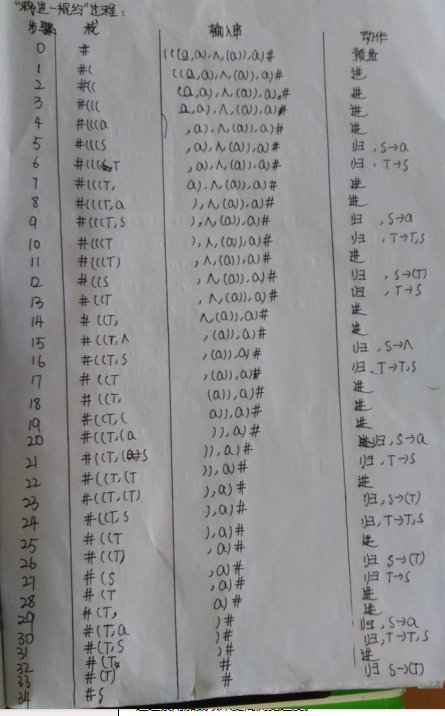 "移进-规约"过程:
步骤 栈 输入串 动作
0 # (((a,a),∧,(a)),a)# 预备
1 #( ((a,a),∧,(a)),a)# 进
2 #(( (a,a),∧,(a)),a)# 进
3 #((( a,a),∧,(a)),a)# 进
4 #(((a ,a),∧,(a)),a)# 进
5 #(((S ,a),∧,(a)),a)# 归,S→a
6 #(((T ,a),∧,(a)),a)# 归,T→S
7 #(((T, a),∧,(a)),a)# 进
8 #(((T,a ),∧,(a)),a)# 进
9 #(((T,S ),∧,(a)),a)# 归,S→a
10 #(((T ),∧,(a)),a)# 归,T→T,S
11 #(((T) ,∧,(a)),a)# 进
12 #((S ,∧,(a)),a)# 归,S→(T)
13 #((T ,∧,(a)),a)# 归,T→S
14 #((T, ∧(a)),a)# 进
15 #((T,∧ ,(a)),a)# 进
16 #((T,S ,(a)),a)# 归,S→∧
17 #((T ,(a)),a)# 归,T→T,S
18 #((T, (a)),a)# 进
19 #((T,( a)),a)# 进
20 #((T,(a )),a)# 进归,S→a
21 #((T,(S )),a)# 归,T→S
22 #((T,(T )),a)# 进
23 #((T,(T) ),a)# 归,S→(T)
24 #((T,S ),a)# 归,T→T,S
25 #((T ),a)# 进
26 #((T) ,a)# 归 S→(T)
27 #(S ,a)# 归 T→S
28 #(T ,a)# 进
29 #(T, a)# 进
30 #(T,a )# 归,S→a
31 #(T,S )# 归,T→T,S
32 #(T )# 进
33 #(T) # 归 S→(T)
34 #S #